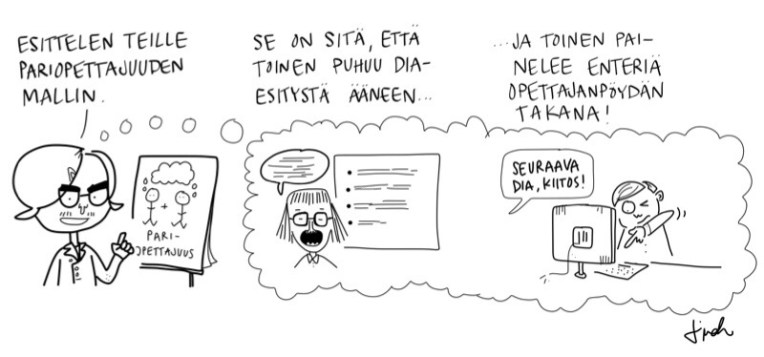 ESITTELEN TEILLE
PARIOPETTAJUUDEN
MALLIN.
PARI-
OPETTAJUUS
SE ON SITÄ, ETTÄ
TOINEN PUHUU DIA-
ESITYSTÄ ÄÄNEEN...
...JA TOINEN PAI-
NELEE ENTERIÄ
OPETTAJANPÖYDÄN
TAKANA!
SEURAAVA
DIA, KIITOS!